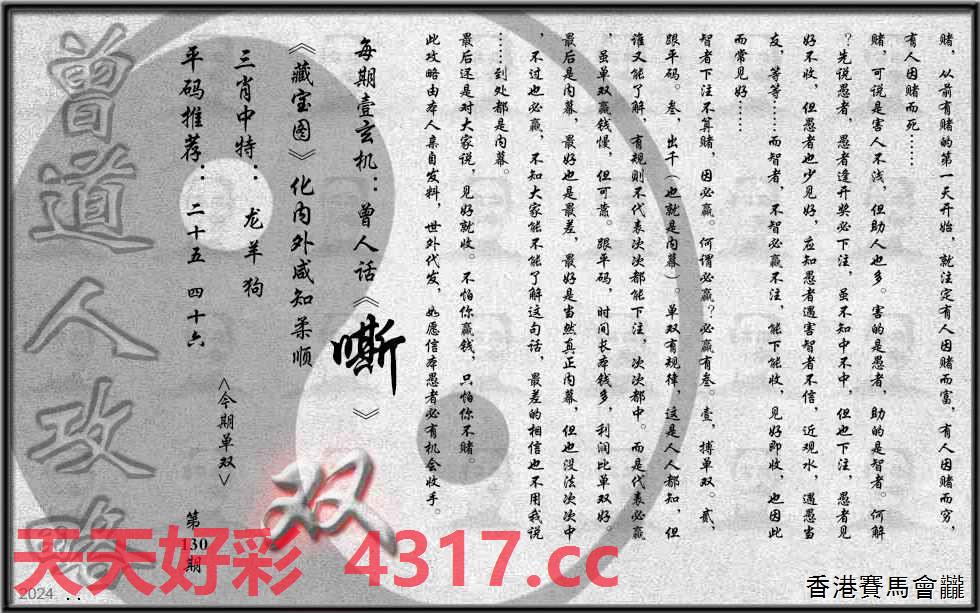 赌，从前有赌的第一天开始，就注定有人因赌而富，有人因赌而穷，
有人因赌而死……
赌，可说是害人不浅，但助人也多。害的是愚者，助的是智者。何解
？先说愚者，愚者逢开奖必下注，虽不知中不中，但也下注，愚者见
好不收，但愚者也少见好，应知愚者遇害智者不信，近观水，遇愚当
友，等等……而智者，不智必赢不注，能下能收，见好即收，也因此
而常见好……
智者下注不算赌，因必赢。何谓必赢？必赢有叁。壹，搏单双。贰，
跟平码。叁，出千（也就是内幕）。单双有规律，这是人人都知，但
谁又能了解，有规则不代表次次都能下注，次次都中。而是代表必赢
，虽单双赢钱慢，但可靠。跟平码，时间长本钱多，利润比单双好。
最后是内幕，最好也是最差，最好是当然真正内幕，但也没法次次中
，不过也必赢，不知大家能不能了解这句话，最差的相信也不用我说
……到处都是内幕。
最后还是对大家说，见好就收。不怕你赢钱，只怕你不赌。
此攻略由本人亲自发料，世外代发，如愿信本愚者必有机会收手。
每期壹玄机：曾人话《嘶》
《藏宝图》化内外咸知柔顺
三肖中特：龙羊狗
<今期单双>
双
平码推荐：二十五 四十六
第130期
曾道人攻略
天天好彩 4317.cc
2024
香港賽馬會